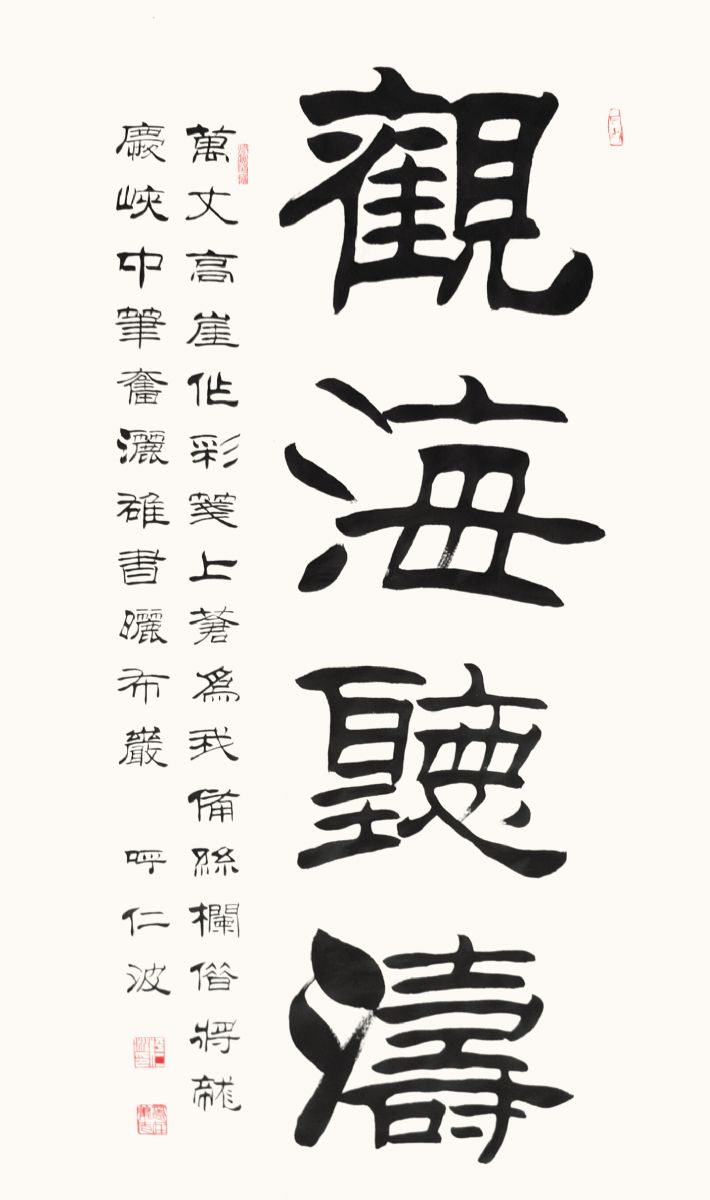 觀海聽濤
萬丈高崖作彩箋上蒼爲我備絲欄借將
峽中筆奮灑雄書曬布巖 呼仁波